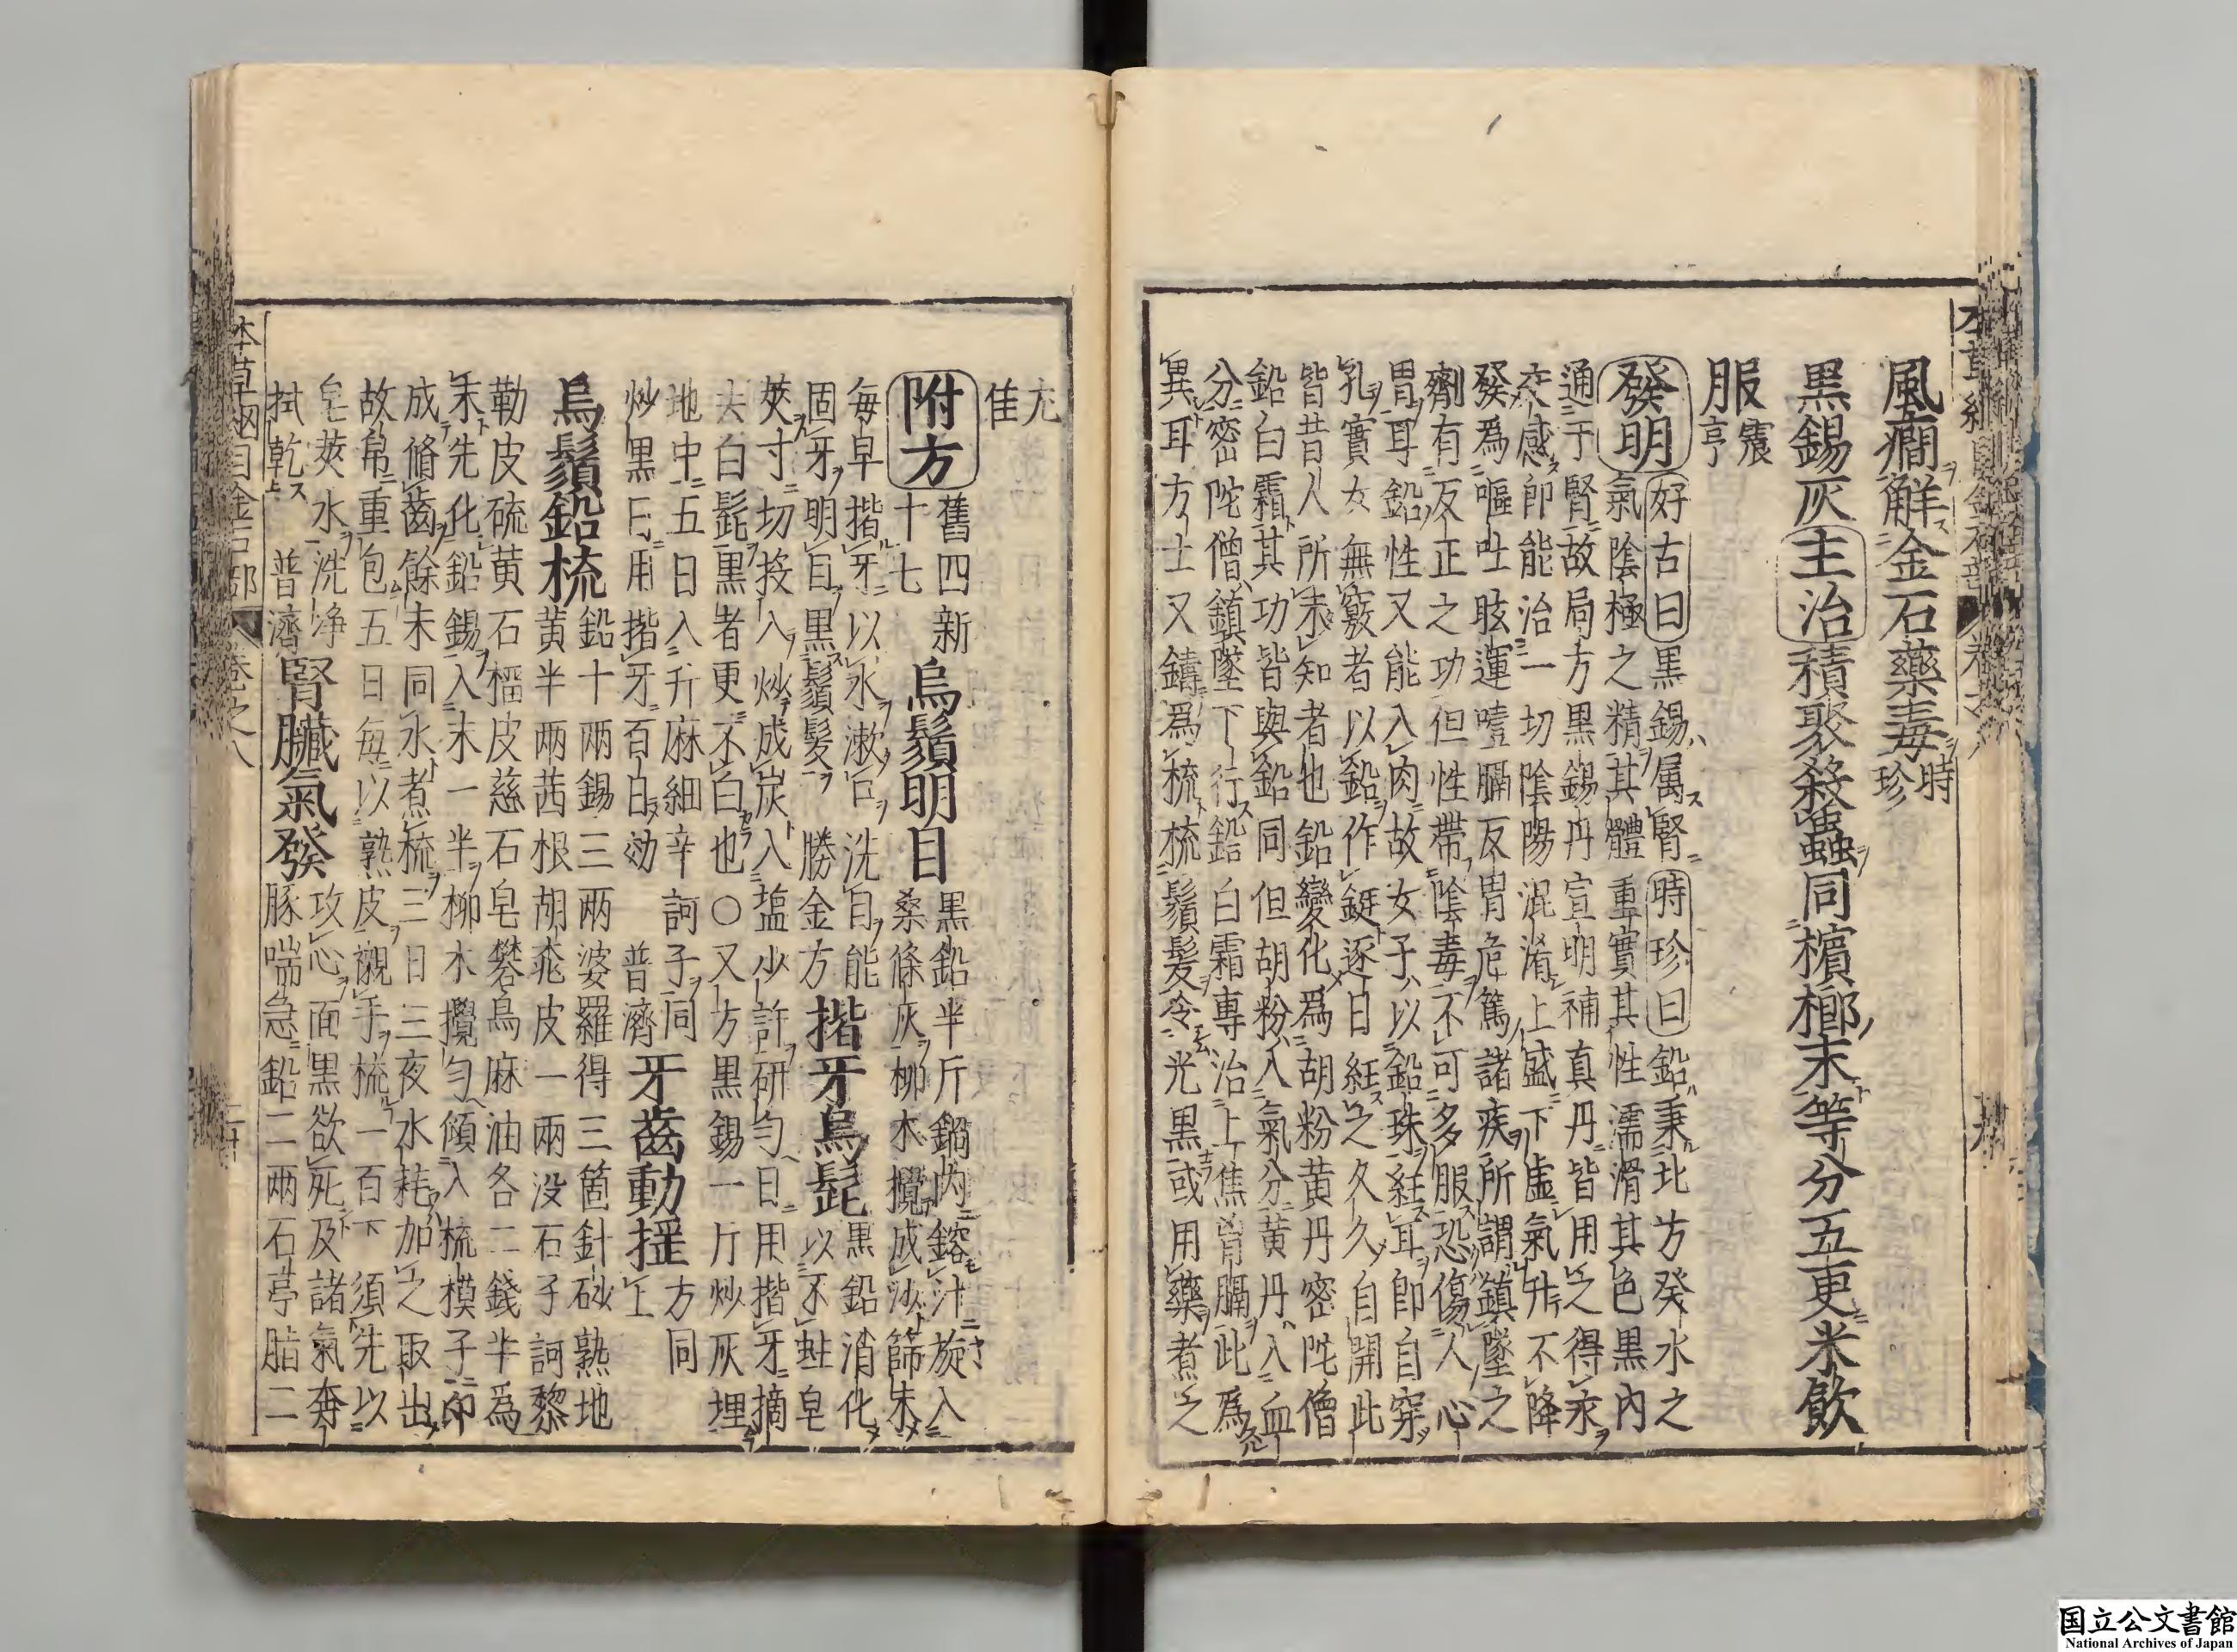 風癇解金石藥毒時珍
黒錫灰主治積聚殺蟲同檳榔末等分五更米飲
服震亨
發明好古曰黒錫属腎時珍曰鉛秉北方癸水之
氣陰極之精其體重實其性濡滑其色黒内
通于腎故局方黒錫丹宣明補真丹皆用之得汞
交感即能治一切陰陽混淆上盛下虚氣升不降
發爲嘔吐眩運噎膈反胃危篤諸疾所謂鎮墜之
劑有反正之功但性帶陰毒不可多服恐傷人心
胃耳鉛性又能入肉故女子以鉛珠紝耳即自穿
孔實女無竅者以鉛作鋌逐日紝之久久自開此
皆昔人所未知者也鉛變化爲胡粉黄丹密陀僧
鉛白霜其功皆與鉛同但胡粉入氣分黄丹入血
分密陀僧鎮墜下行鉛白霜專治上焦胸膈此爲
異耳方士又鑄爲梳梳鬚髮令光黒或用藥煮之
尤
佳
附方舊四新十七烏鬚明目黒鉛半斤鍋内鎔汁旋入
桑條灰柳木攪成沙篩末
毎早揩牙以水漱口洗目能
固牙明目黒鬚髮 勝金方揩牙烏髭黒鉛消化
以不蛀皂
莢寸切投入炒成炭入塩少許研匀日用揩牙摘
去白髭黒者更不白也○又方黒錫一斤炒灰埋
地中五日入升麻細辛訶子同
炒黒日用揩牙百日効 普濟牙齒動揺方同
上
烏鬚鉛梳鉛十兩錫三兩婆羅得三箇針砂熟地
黄半兩茜根胡桃皮一兩没石子訶黎
勒皮硫黄石榴皮慈石皂礬烏麻油各二錢半爲
末先化鉛錫入末一半柳木攪匀傾入梳模子印
成脩齒餘末同水煮梳三日三夜水耗加之取出
故帛重包五日毎以熟皮襯手梳一百下須先以
皂莢水洗浄
拭乾 普濟腎臓氣發攻心面黒欲死及諸氣奔
豚喘急鉛二兩石亭脂二
本草綱目金石部 卷之八
国立公文書館
National Archives of Japan